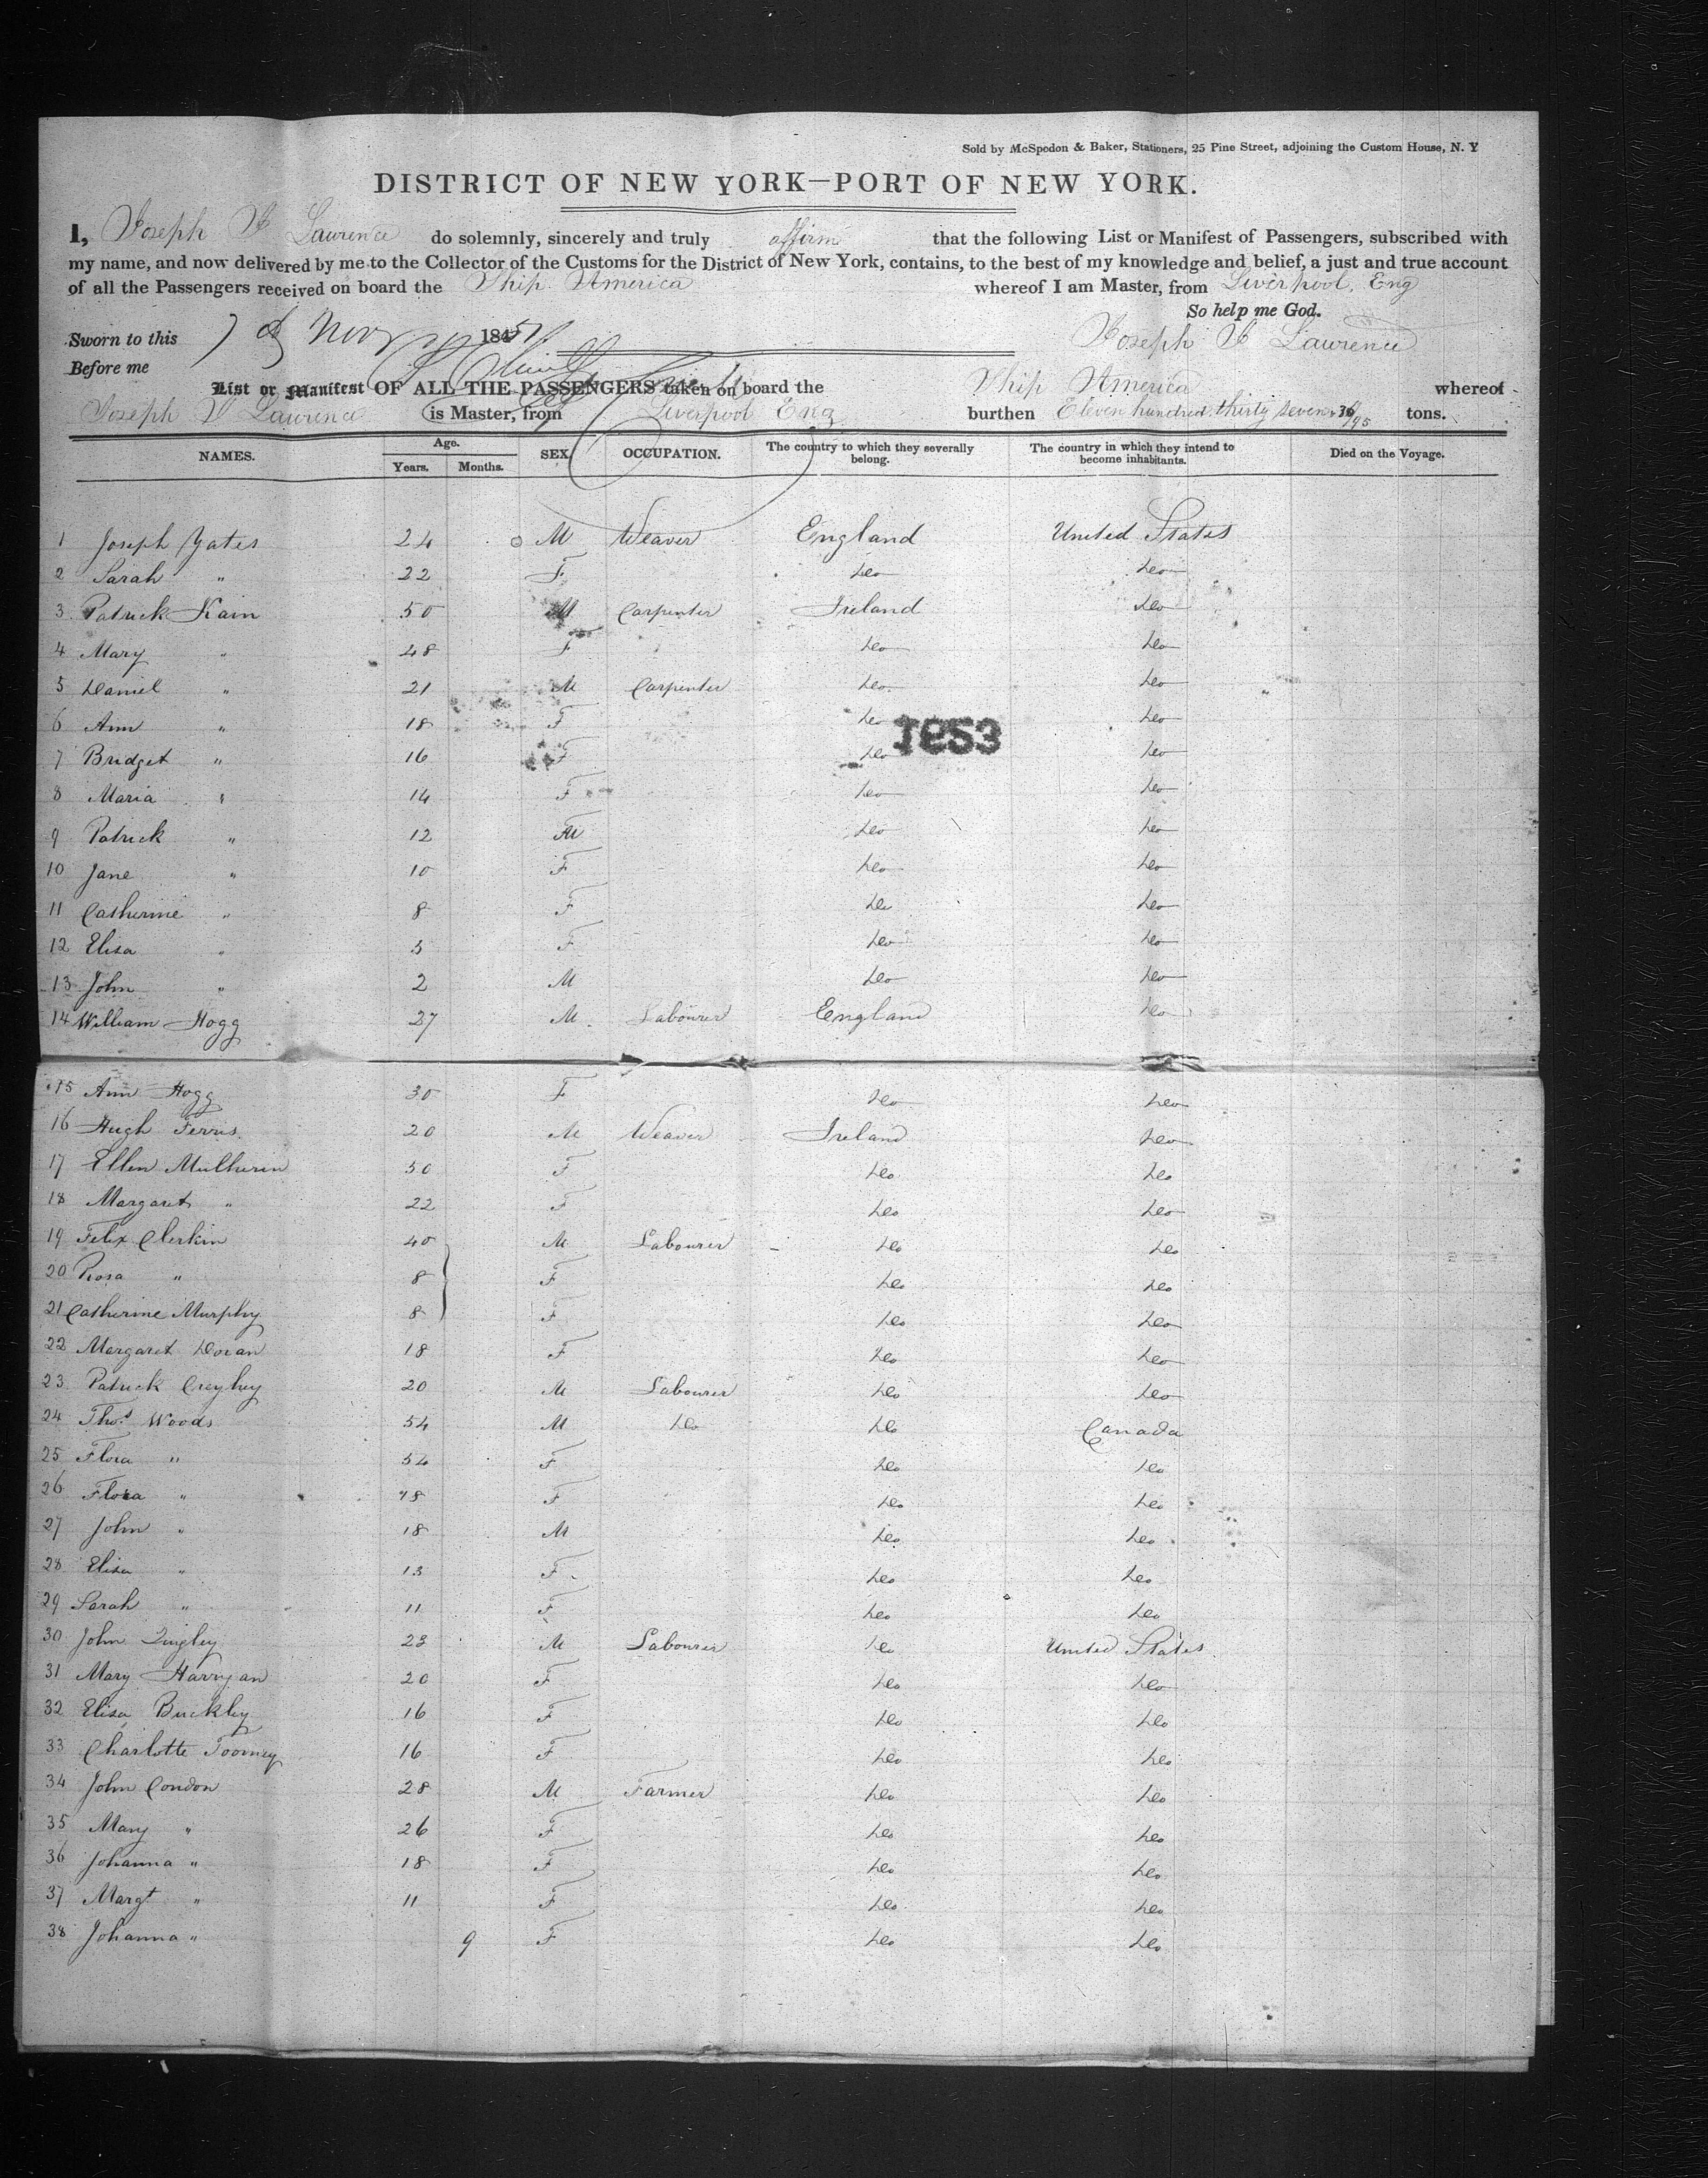 Sold by McSpedon & Baker, Stationers, 25 Pine Street, adjoining the Custom House, N. Y
DISTRICT OF NEW YORK—PORT OF NEW YORK.
I, Joseph Lawrence do solemnly, sincerely and truly affirm that the following List or Manifest of Passengers, subscribed with
my name, and now delivered by me to the Collector of the Customs for the District of New York, contains, to the best of my knowledge and belief, a just and true account
of all the Passengers received on board the Ship America whereof I am Master, from Liverpool, Eng
So help me God.
Sworn to this 7 of Nov 1851 Joseph Lawrence
Before me
List or Manifest OF ALL THE PASSENGERS taken on board the Ship America whereof
Joseph Lawrence is Master, from Liverpool Eng burthen Eleven hundred thirty seven 36/95 tons.
NAMES. Age. Years. Months. SEX. OCCUPATION. The country to which they severally belong. The country in which they intend to become inhabitants. Died on the Voyage.
1 Joseph Yates 24 M Weaver England United States
2 Sarah " 22 F Do Do
3 Patrick Kain 50 M Carpenter Ireland Do
4 Mary " 48 F Do Do
5 Daniel " 21 M Carpenter Do Do
6 Ann " 18 F Do Do
1853
7 Bridget " 16 F Do Do
8 Maria " 14 F Do Do
9 Patrick " 12 M Do Do
10 Jane " 10 F Do Do
11 Catherine " 8 F Do Do
12 Elisa " 5 F Do Do
13 John " 2 M Do Do
14 William Hogg 27 M Labourer England Do
15 Ann Hogg 30 F Do Do
16 Hugh Ferris 20 M Weaver Ireland Do
17 Ellen Mulherin 50 F Do Do
18 Margaret " 22 F Do Do
19 Felix Clerkin 40 M Labourer Do Do
20 Rosa " 8 F Do Do
21 Catherine Murphy 8 F Do Do
22 Margaret Doran 18 F Do Do
23 Patrick 20 M Labourer Do Do
24 Thos Woods 54 M Do Do Canada
25 Flora " 54 F Do Do
26 Flora " 18 F Do Do
27 John " 18 M Do Do
28 Elisa " 13 F Do Do
29 Sarah " 11 F Do Do
30 John 23 M Labourer Do United States
31 Mary Harrigan 20 F Do Do
32 Elisa Buckley 16 F Do Do
33 Charlotte Toomey 16 F Do Do
34 John Condon 28 M Farmer Do Do
35 Mary " 26 F Do Do
36 Johanna " 18 F Do Do
37 Margt " 11 F Do Do
38 Johanna " 9 F Do Do